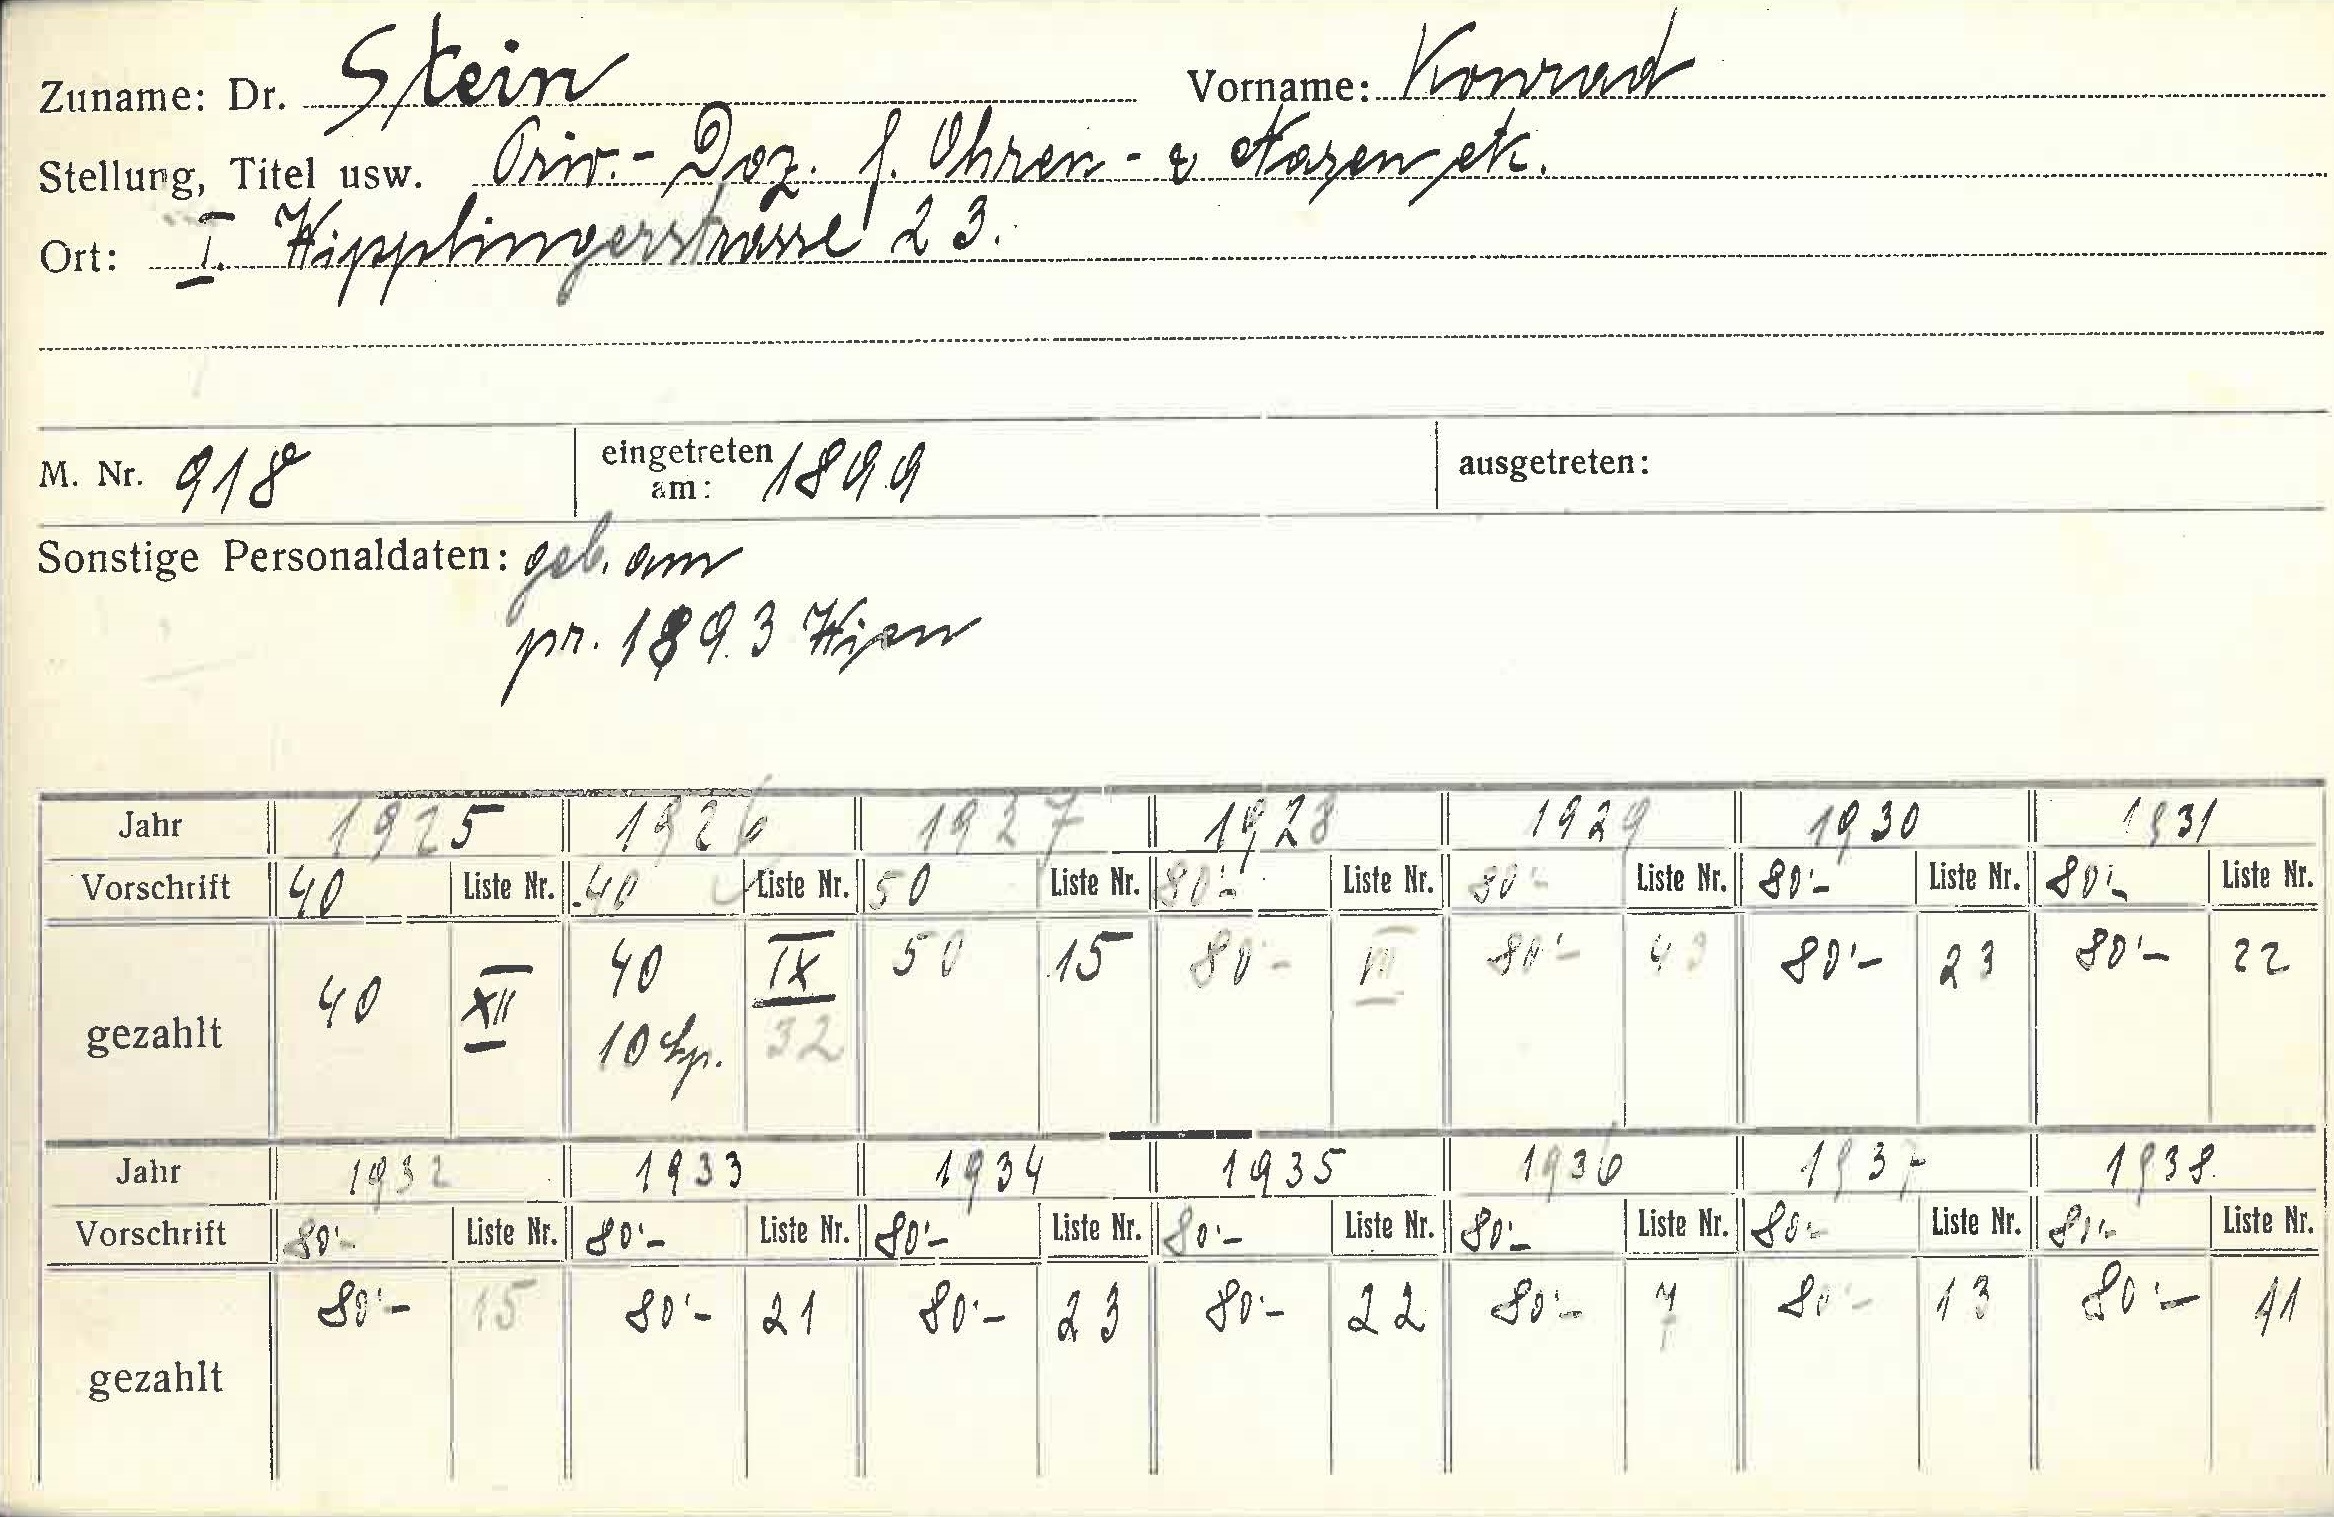 Zuname: Dr. Stein Vorname: Konrad
Stellung, Titel usw. Priv.- Doz. f. Ohren- u Nasen etc.
Ort: I. Wipplingerstrasse 23.
M. Nr. 918 eingetreten am: 1899 ausgetreten:
Sonstige Personaldaten: geb. am
pr. 1893 Wien
Jahr 1925 1926 1927 1928 1929 1930 1931
Vorschrift 40 Liste Nr. 40 Liste Nr. 50 Liste Nr. 80'- Liste Nr. 80'- Liste Nr. 80'- Liste Nr. 80'- Liste Nr.
gezahlt 40 XII 40 IX 50 15 80'- VII 80'- 43 80'- 23 80'- 22
10 32
Jahr 1932 1933 1934 1935 1936 1937 1938
Vorschrift 80'- Liste Nr. 80'- Liste Nr. 80'- Liste Nr. 80'- Liste Nr. 80'- Liste Nr. 80'- Liste Nr. 80'- Liste Nr.
gezahlt 80'- 15 80'- 21 80'- 23 80'- 22 80'- 7 80'- 13 80'- 11